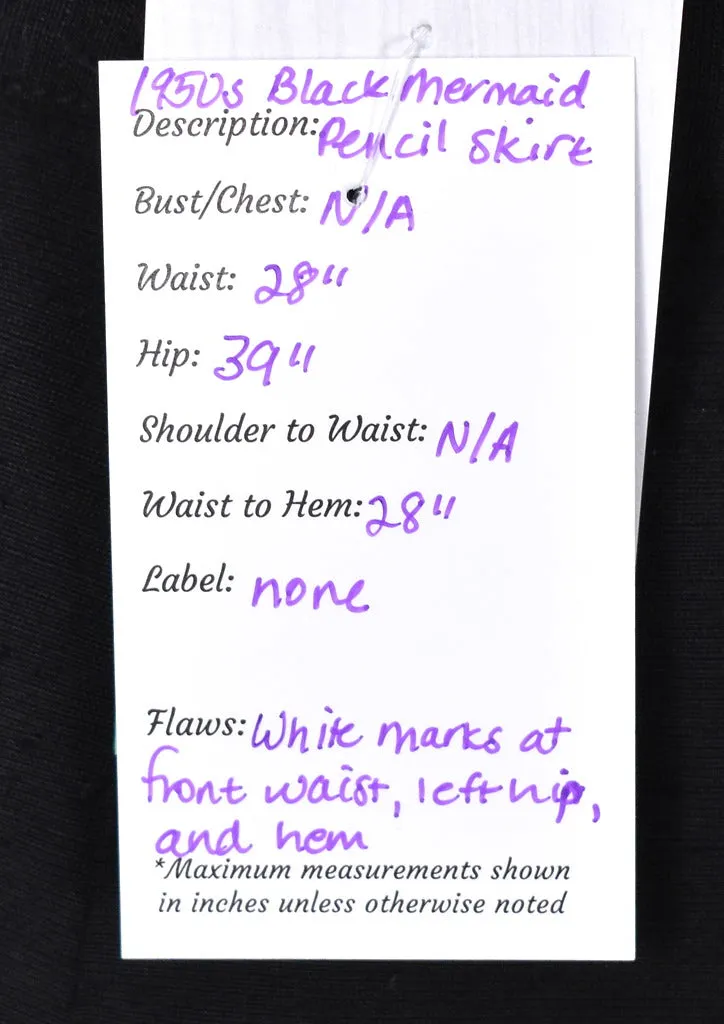 1950s Black Mermaid
Description: Pencil Skirt
Bust/Chest: N/A
Waist: 28"
Hip: 39"
Shoulder to Waist: N/A
Waist to Hem: 28"
Label: none
Flaws: White marks at
front waist, left hip,
and hem
*Maximum measurements shown
in inches unless otherwise noted